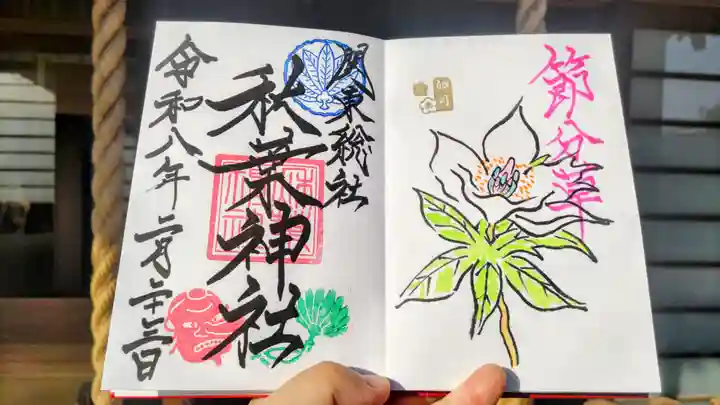 節分草
関東総社
秋葉神社
令和八年二月二十三日